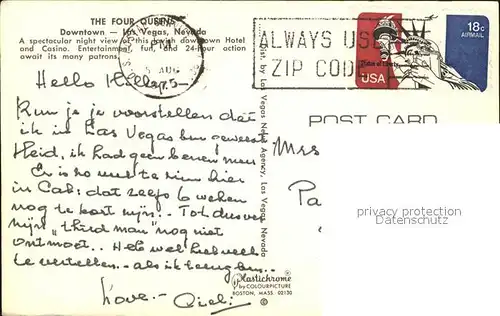 THE FOUR QUEENS
Downtown — Las Vegas, Nevada
A spectacular night view of this lavish downtown Hotel
and Casino. Entertainment, fun, and 24-hour action
await its many patrons.
ALWAYS USE
ZIP CODE
USA
18c
AIRMAIL
Hello
Kun je je voorstellen dat
ik in Las Vegas ben geweest
Heid, ik had geen benen meer
Er is no veel te zien hier
in Cal: dat 6 weken
nog te kort zijn.. Tot dusver
mijn "third man" nog niet
ontmoet.. Heb wel heel veel
te vertellen - als ik terug ben..
Love -
POST CARD
Mrs
Pa
Dist. by Las Vegas News Agency, Las Vegas, Nevada
Plastichrome
by COLOURPICTURE
BOSTON, MASS. 02130
©
privacy protection
oldthing.com